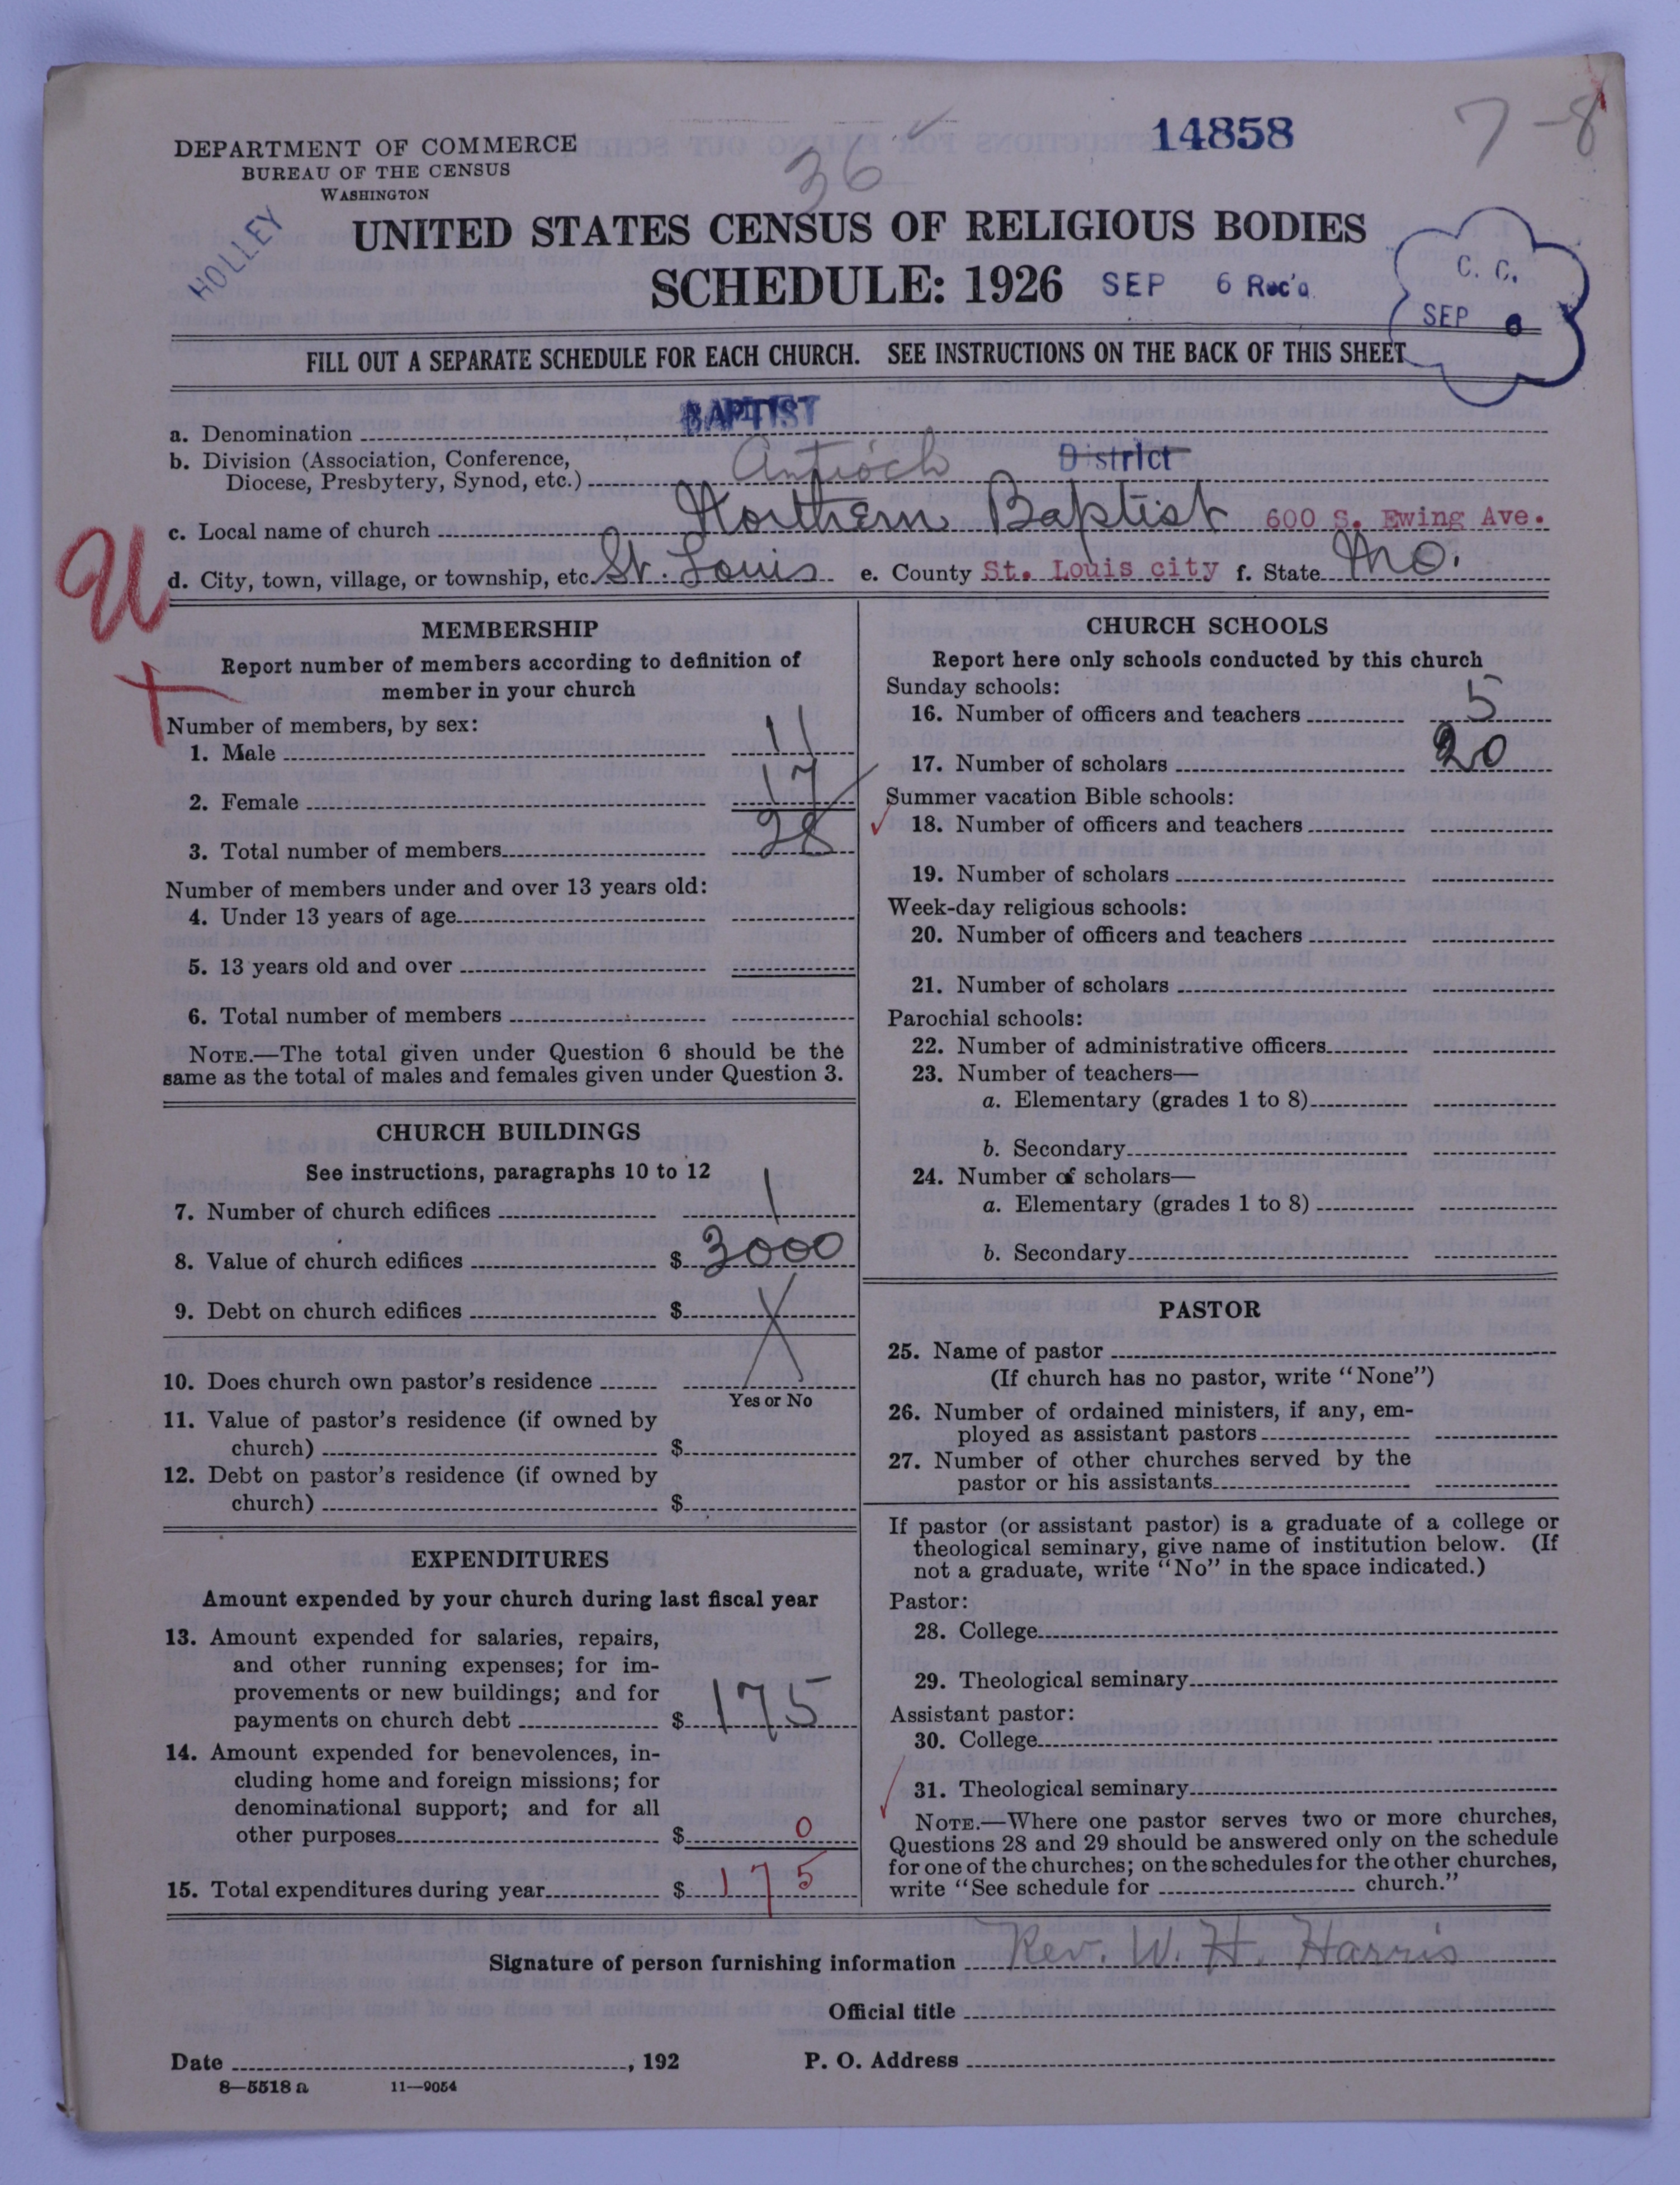 14858
7-8
36
DEPARTMENT OF COMMERCE
BUREAU OF THE CENSUS
WASHINGTON
HOLLEY
UNITED STATES CENSUS OF RELIGIOUS BODIES
SCHEDULE: 1926 SEP 6 Rec'd
C. C.
SEP 6
FILL OUT A SEPARATE SCHEDULE FOR EACH CHURCH. SEE INSTRUCTIONS ON THE BACK OF THIS SHEET
a. Denomination BAPTIST
b. Division (Association, Conference,
Diocese, Presbytery, Synod, etc.) Antioch District
c. Local name of church Northern Baptist 600 S. Ewing Ave.
d. City, town, village, or township, etc. St. Louis e. County St. Louis city f. State Mo.
U
MEMBERSHIP
Report number of members according to definition of
member in your church
Number of members, by sex:
1. Male 11
2. Female 17
3. Total number of members 28
Number of members under and over 13 years old:
4. Under 13 years of age
5. 13 years old and over
6. Total number of members
NOTE.—The total given under Question 6 should be the
same as the total of males and females given under Question 3.
CHURCH BUILDINGS
See instructions, paragraphs 10 to 12
7. Number of church edifices 1
8. Value of church edifices $ 3000
9. Debt on church edifices $ X
10. Does church own pastor's residence
Yes or No
11. Value of pastor's residence (if owned by
church) $
12. Debt on pastor's residence (if owned by
church) $
EXPENDITURES
Amount expended by your church during last fiscal year
13. Amount expended for salaries, repairs,
and other running expenses; for im-
provements or new buildings; and for
payments on church debt $ 175
14. Amount expended for benevolences, in-
cluding home and foreign missions; for
denominational support; and for all
other purposes $ 0
15. Total expenditures during year $ 175
CHURCH SCHOOLS
Report here only schools conducted by this church
Sunday schools:
16. Number of officers and teachers 5
17. Number of scholars 20
Summer vacation Bible schools:
18. Number of officers and teachers
19. Number of scholars
Week-day religious schools:
20. Number of officers and teachers
21. Number of scholars
Parochial schools:
22. Number of administrative officers
23. Number of teachers—
a. Elementary (grades 1 to 8)
b. Secondary
24. Number of scholars—
a. Elementary (grades 1 to 8)
b. Secondary
PASTOR
25. Name of pastor
(If church has no pastor, write "None")
26. Number of ordained ministers, if any, em-
ployed as assistant pastors
27. Number of other churches served by the
pastor or his assistants
If pastor (or assistant pastor) is a graduate of a college or
theological seminary, give name of institution below. (If
not a graduate, write "No" in the space indicated.)
Pastor:
28. College
29. Theological seminary
Assistant pastor:
30. College
31. Theological seminary
NOTE.—Where one pastor serves two or more churches,
Questions 28 and 29 should be answered only on the schedule
for one of the churches; on the schedules for the other churches,
write "See schedule for church."
Signature of person furnishing information Rev. W. H. Harris
Official title
Date , 192 P. O. Address
8—5518 a 11—9054